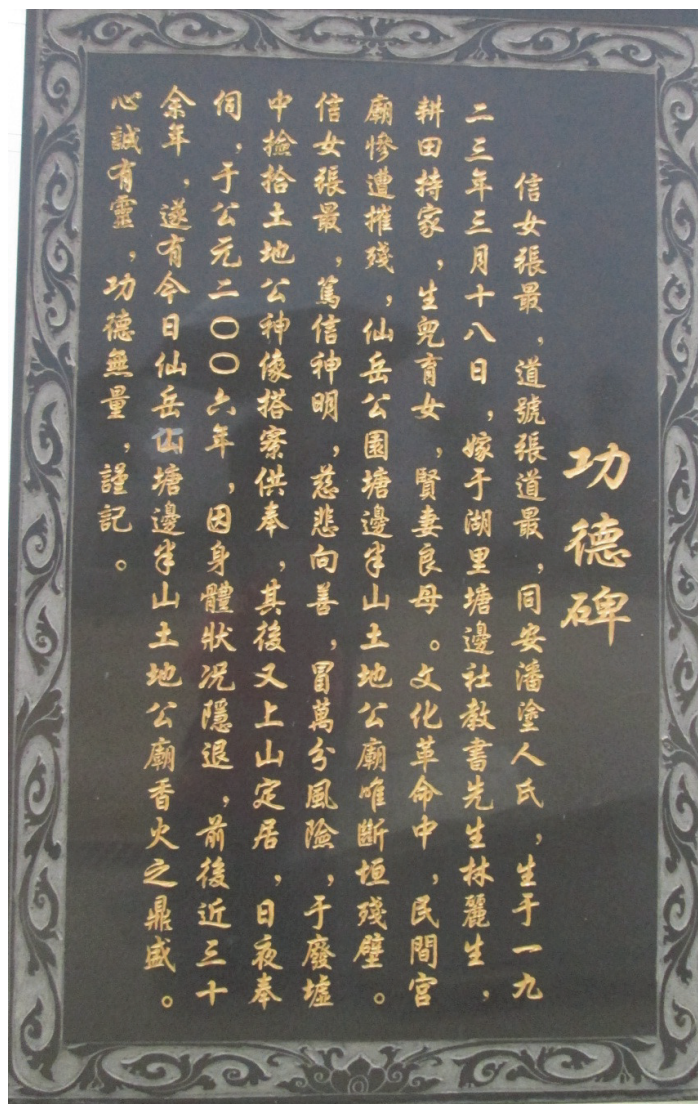 功德碑
信女張最，道號張道最，同安潘塗人氏，生于一九
二三年三月十八日，嫁于湖里塘邊社教書先生林麗生，
耕田持家，生兒育女，賢妻良母。文化革命中，民間宮
廟慘遭摧殘，仙岳公園塘邊半山土地公廟唯斷垣殘壁。
信女張最，篤信神明，慈悲向善，冒萬分風險，于廢墟
中撿拾土地公神像搭寮供奉，其後又上山定居，日夜奉
伺，于公元二〇〇六年，因身體狀况隱退，前後近三十
余年，遂有今日仙岳山塘邊半山土地公廟香火之鼎盛。
心誠有靈，功德無量，謹記。